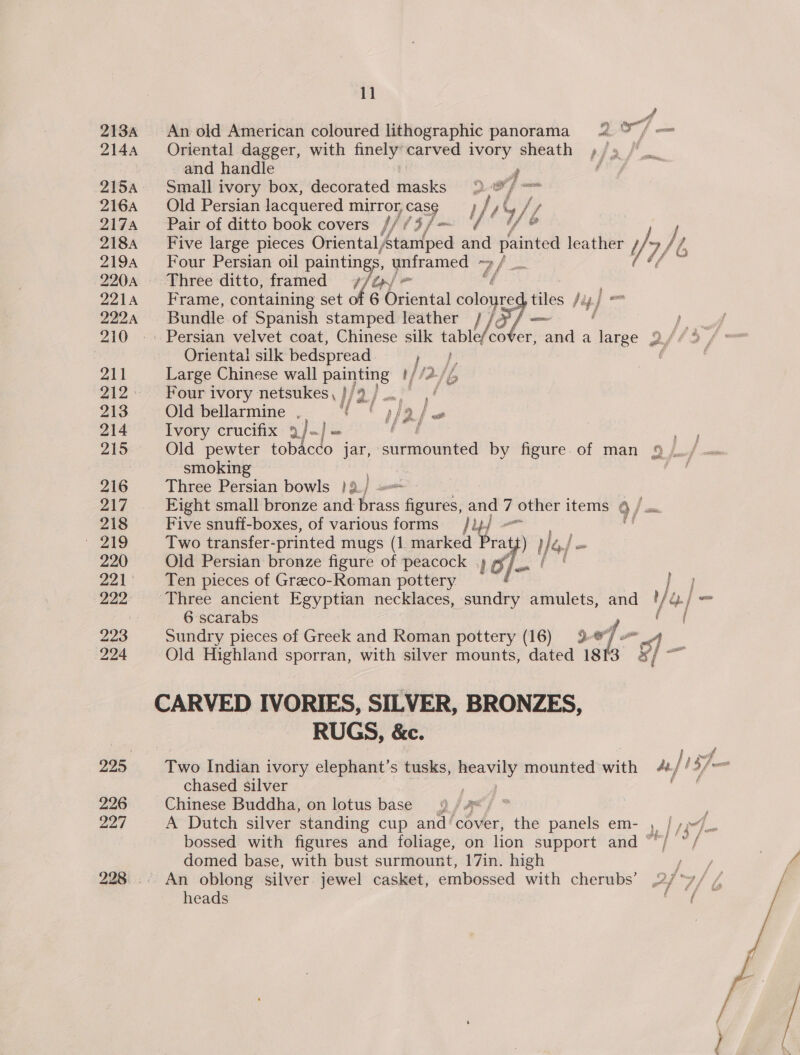 11
213A An old American coloured lithographic panorama
214A Oriental dagger, with finely carved ivory sheath
and handle
215A Small ivory box, decorated masks
216A Old Persian lacquered mirror case
217A Pair of ditto book covers
218A Five large pieces Oriental stamped and painted leather
219A Four Persian oil paintings, unframed
220A Three ditto, framed
221A Frame, containing set of 6 Oriental coloured tiles
222A Bundle of Spanish stamped leather
210 Persian velvet coat, Chinese silk table cover, and a large
Oriental silk bedspread
211 Large Chinese wall painting
212 Four ivory netsukes
213 Old bellarmine
214 Ivory crucifix
215 Old pewter tobacco jar, surmounted by figure of man
smoking
216 Three Persian bowls
217 Eight small bronze and brass figures, and 7 other items
218 Five snuff-boxes, of various forms
219 Two transfer-printed mugs (1 marked Pratt)
220 Old Persian bronze figure of peacock
221 Ten pieces of Græco-Roman pottery
222 Three ancient Egyptian necklaces, sundry amulets, and
6 scarabs
223 Sundry pieces of Greek and Roman pottery (16)
224 Old Highland sporran, with silver mounts, dated 1813
CARVED IVORIES, SILVER, BRONZES,
RUGS, &c.
225 Two Indian ivory elephant's tusks, heavily mounted with
chased silver
226 Chinese Buddha, on lotus base
227 A Dutch silver standing cup and cover, the panels em-
bossed with figures and foliage, on lion support and
domed base, with bust surmount, 17in. high
228 An oblong silver jewel casket, embossed with cherubs'
heads